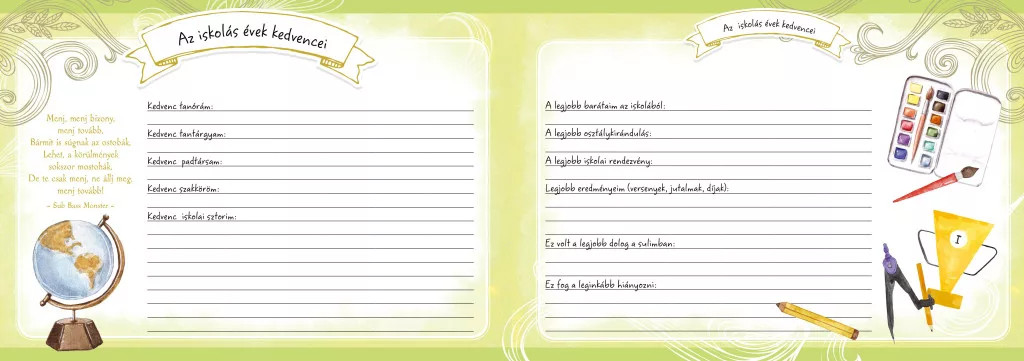 Az iskolás évek kedvencei
Menj, menj bizony,
menj tovább,
Bármit is súgnak az ostobák,
Lehet, a körülmények
sokszor mostohák,
De te csak menj, ne állj meg,
menj tovább!
~ Sub Bass Monster ~
Kedvenc tanórám:
Kedvenc tantárgyam:
Kedvenc padtársam:
Kedvenc szakköröm:
Kedvenc iskolai sztorim:
Az iskolás évek kedvencei
A legjobb barátaim az iskolából:
A legjobb osztálykirándulás:
A legjobb iskolai rendezvény:
Legjobb eredményeim (versenyek, jutalmak, díjak):
Ez volt a legjobb dolog a sulimban:
Ez fog a leginkább hiányozni:
I